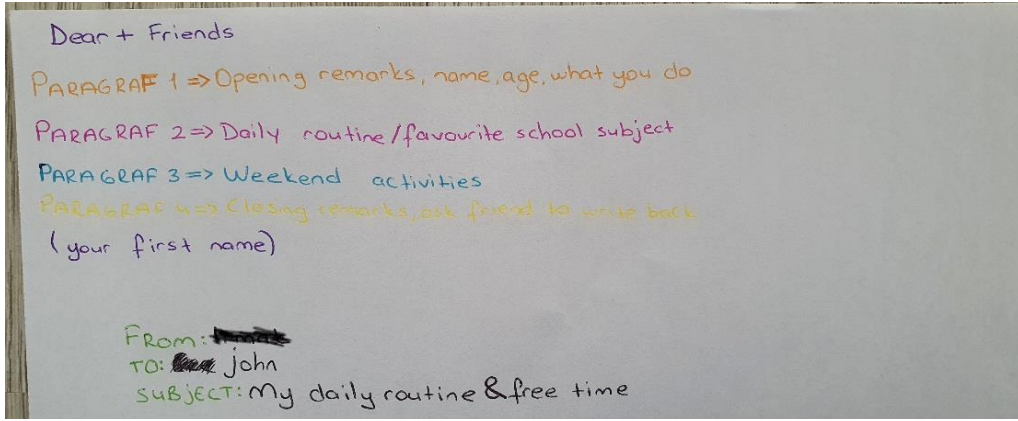 Dear + Friends
PARAGRAF 1 => Opening remarks, name, age, what you do
PARAGRAF 2 => Daily routine/favourite school subject
PARAGRAF 3 => Weekend activities
PARAGRAF 4 => Closing remarks, ask friend to write back
(your first name)
FROM:
TO: john
SUBJECT: My daily routine & free time